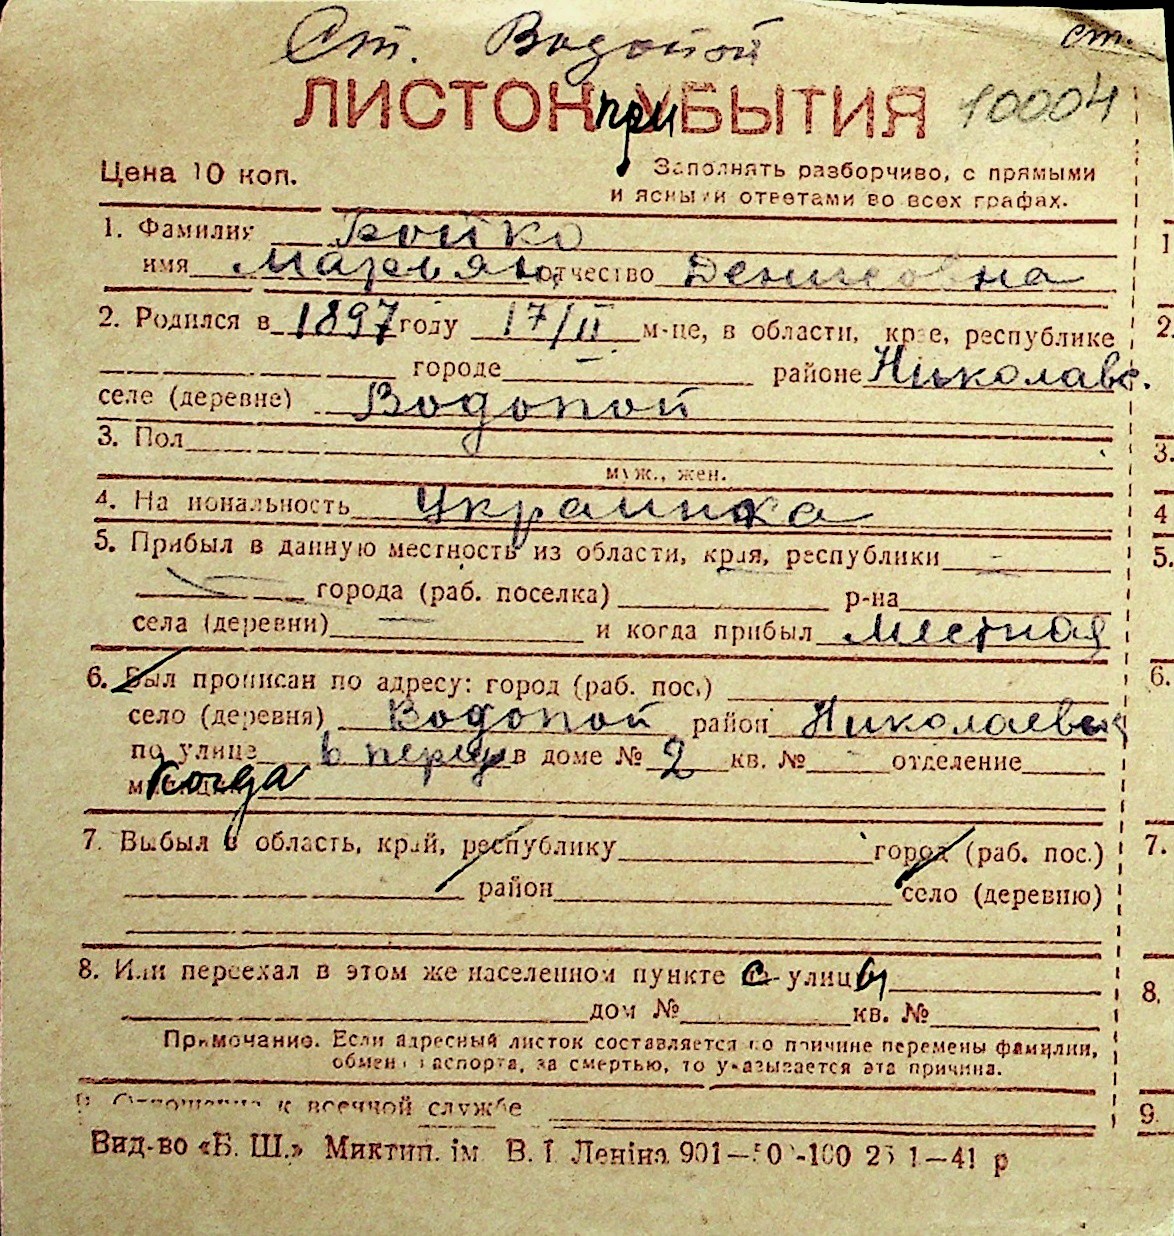 Ст. Водопой ст.
ЛИСТОК при УБЫТИЯ 10004
Цена 10 коп. Заполнять разборчиво, с прямыми
и ясными ответами во всех графах.
1. Фамилия Бойко
имя отчество Денисовна
2. Родился в 1897 году 17/II м-це, в области, крае, республике
городе — районе Николаевс.
селе (деревне) Водопой
3. Пол
муж., жен.
4. Национальность Украинка
5. Прибыл в данную местность из области, края, республики —
города (раб. поселка) р-на
села (деревни) — и когда прибыл Местная
6. Был прописан по адресу: город (раб. пос.)
село (деревня) Водопой район Николаевск
по улице в доме № 2 кв. № — отделение
когда
7. Выбыл в область, край, республику город (раб. пос.)
район село (деревню)
8. Или переехал в этом же населенном пункте с улицы
дом № кв. №
Примечание. Если адресный листок составляется по причине перемены фамилии,
обмена паспорта, за смертью, то указывается эта причина.
9. Отношение к военной службе
Вид-во «Б. Ш.» Миктип. ім В. І Леніна 901—50 -100 25 1—41 р
1
2.
3.
4
5.
6.
7.
8.
9.